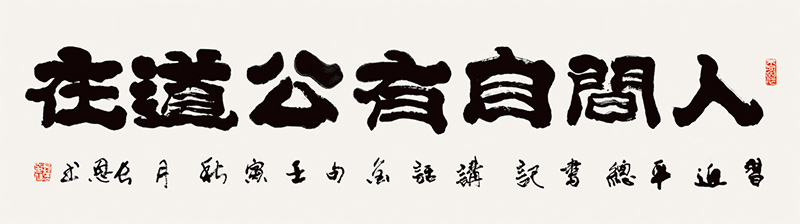 人間自有公道在
習近平總書記講話金句壬寅秋月長恩